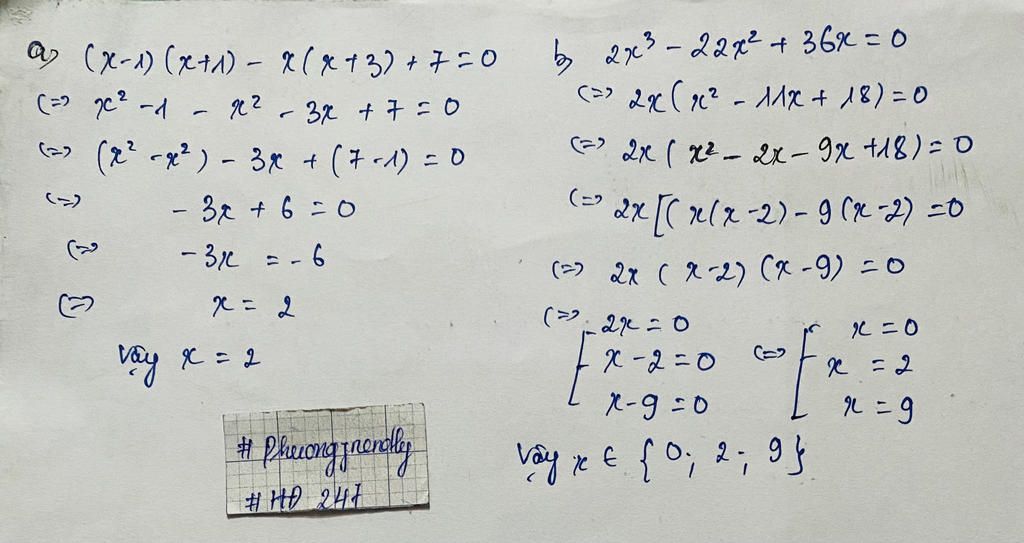 a) (x-1)(x+1) - x(x+3) + 7 = 0
(=) x² - 1 - x² - 3x + 7 = 0
(=) (x² - x²) - 3x + (7-1) = 0
(=) - 3x + 6 = 0
(=) - 3x = - 6
(=) x = 2
Vậy x = 2
# Phuongfriendly
# HĐ 247
b) 2x³ - 22x² + 36x = 0
(=) 2x(x² - 11x + 18) = 0
(=) 2x(x² - 2x - 9x + 18) = 0
(=) 2x[(x(x-2) - 9(x-2) = 0
(=) 2x(x-2)(x-9) = 0
(=) [ 2x = 0 (=) [ x = 0
x - 2 = 0 x = 2
x - 9 = 0 x = 9
Vậy x ∈ {0; 2; 9}